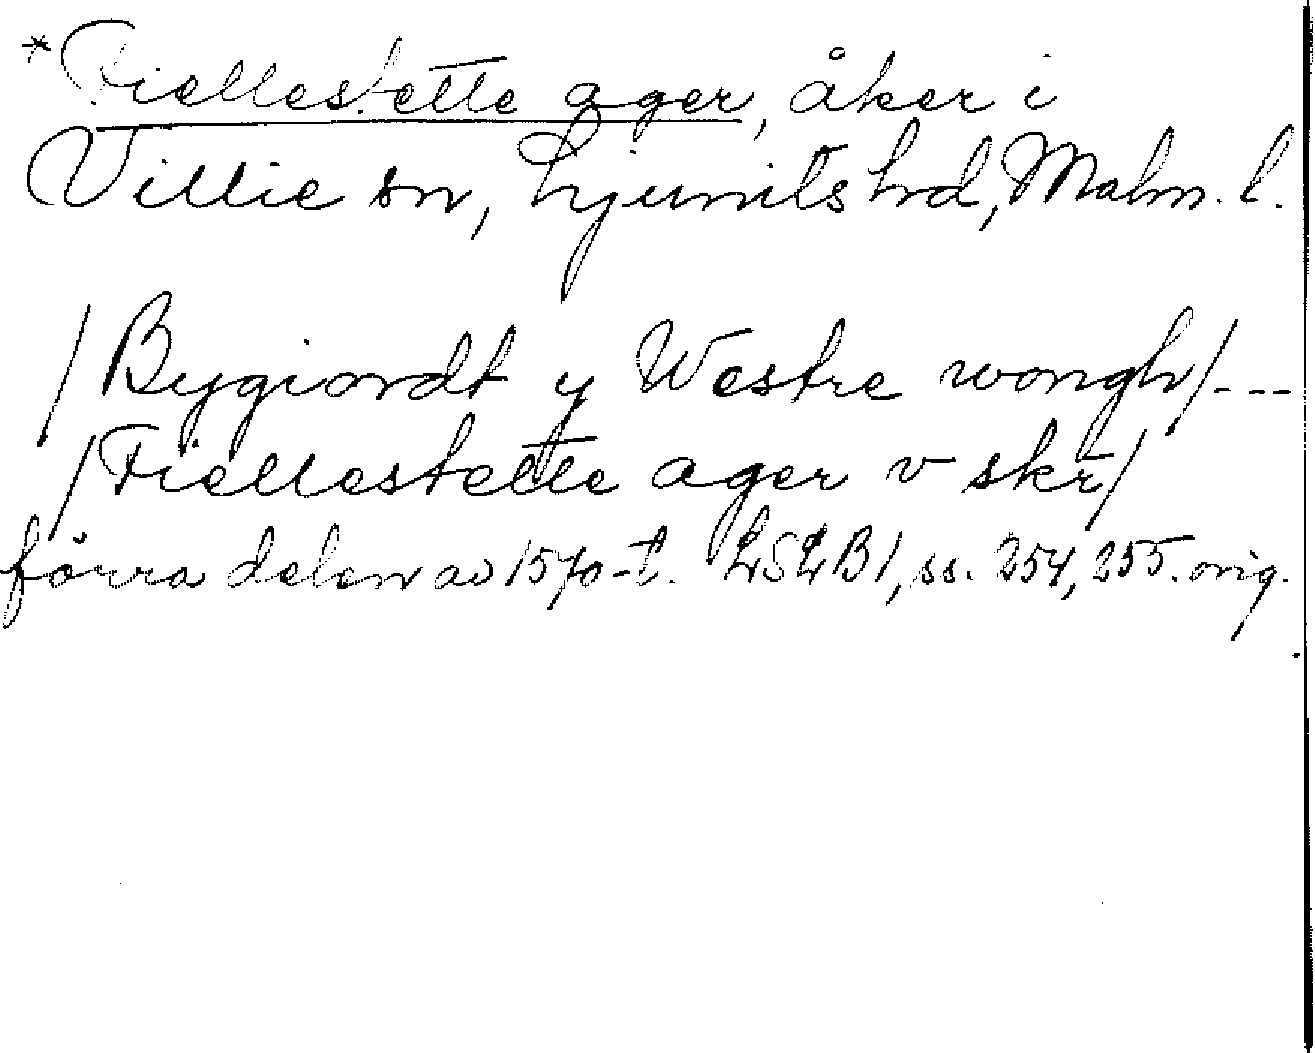 *Fiellestette ager, åker i
Villie sn, Ljunits hrd, Malm. l.
/Bygiordt y Westre wongh/---
/Fiellestette ager v skr/
förra delen av 1570-t. LSLB1, ss. 254, 255. orig.